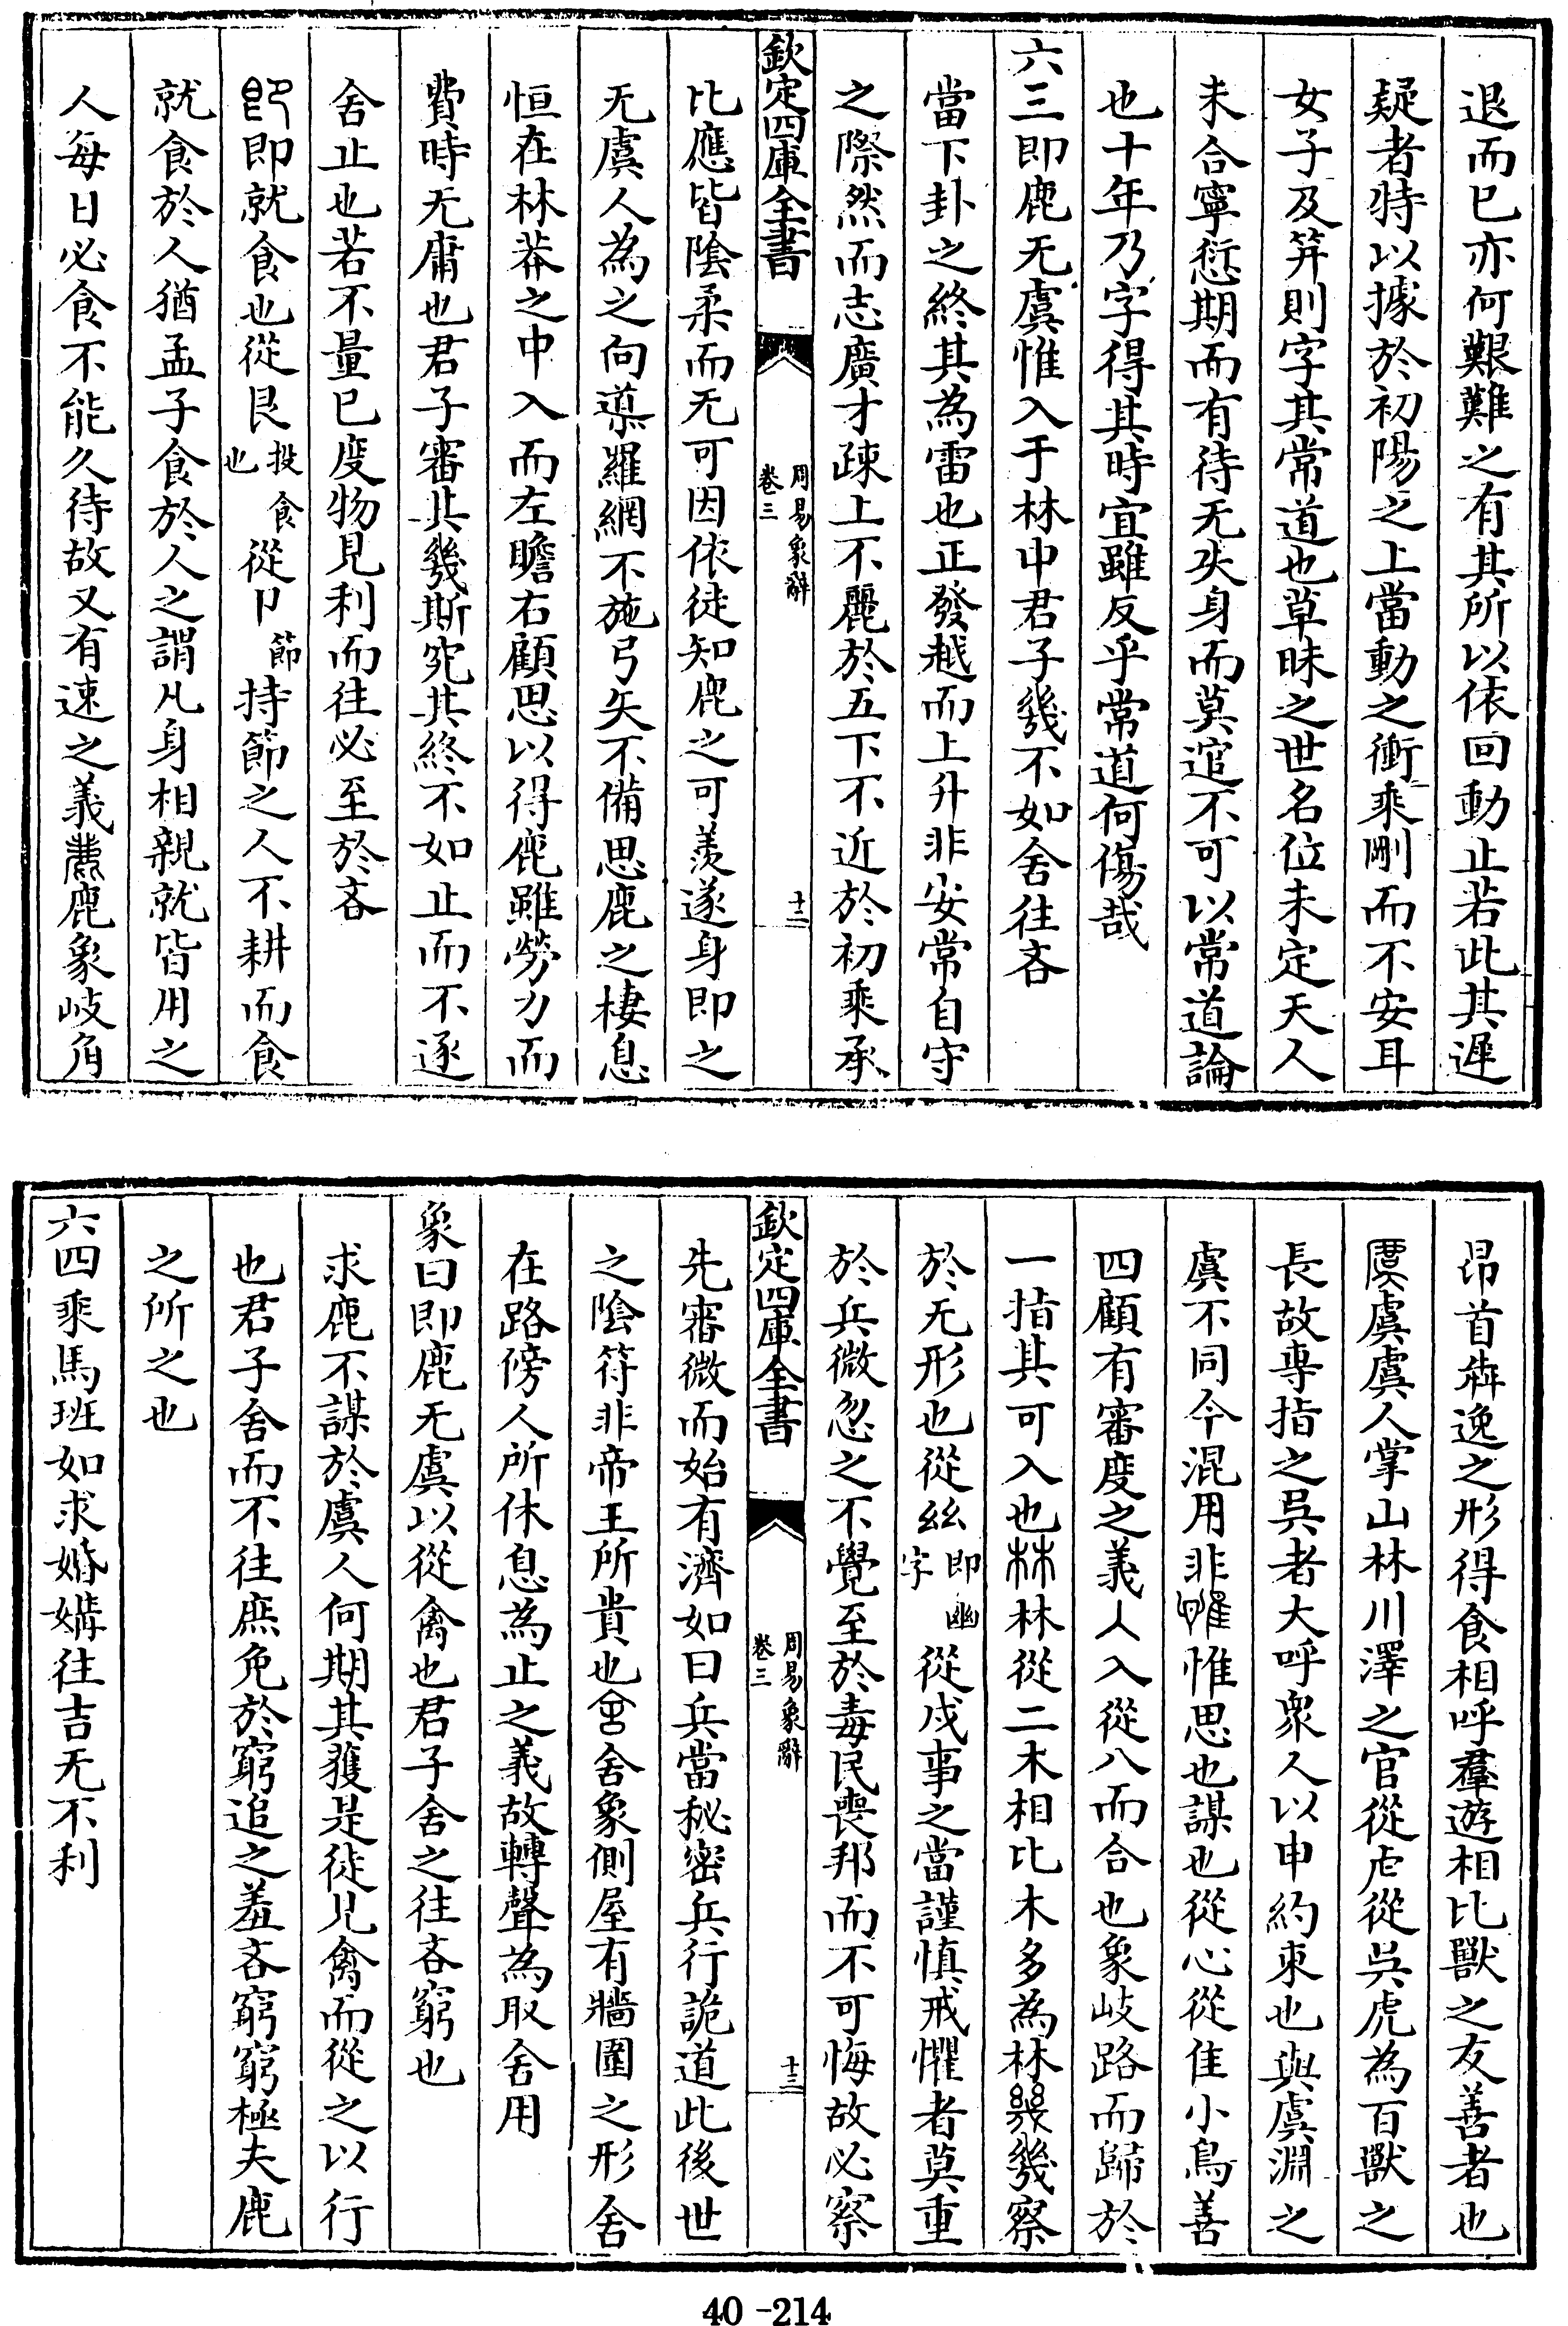 退而已亦何艱難之有其所以依回動止若此其遲
疑者特以據於初陽之上當動之衝乘剛而不安耳
女子及笄則字其常道也草昧之世名位未定天人
未合寧愆期而有待无失身而莫逭不可以常道論
也十年乃字得其時宜雖反乎常道何傷哉
六三即鹿无虞惟入于林中君子幾不如舍往吝
當下卦之終其為雷也正發越而上升非安常自守
之際然而志廣才疎上不麗於五下不近於初乘承
欽定四庫全書
周易象辭
卷三
十二
比應皆陰柔而无可因依徒知鹿之可羨遂身即之
无虞人為之向導羅網不施弓矢不備思鹿之棲息
恒在林莽之中入而左瞻右顧思以得鹿雖勞力而
費時无庸也君子審其幾斯究其終不如止而不逐
舍止也若不量已度物見利而往必至於吝
即就食也從皀投食也從卩節持節之人不耕而食
就食於人猶孟子食於人之謂凡身相親就皆用之
人每日必食不能久待故又有速之義鹿象岐角
昂首犇逸之形得食相呼羣遊相比獸之友善者也
虞虞人掌山林川澤之官從虍從吳虎為百獸之
長故専指之吳者大呼衆人以申約束也與虞淵之
虞不同今混用非惟思也謀也從心從隹小鳥善
四顧有審度之義入從八而合也象岐路而歸於
一指其可入也林從二木相比木多為林幾察
於无形也從𢆶即幽字從戍事之當謹慎戒懼者莫重
於兵微忽之不覺至於毒民喪邦而不可悔故必察
欽定四庫全書
周易象辭
卷三
十三
先審微而始有濟如曰兵當秘密兵行詭道此後世
之陰符非帝王所貴也舍象側屋有牆圍之形舍
在路傍人所休息為止之義故轉聲為取舍用
象曰即鹿无虞以從禽也君子舍之往吝窮也
求鹿不謀於虞人何期其獲是徒見禽而從之以行
也君子舍而不往庶免於窮追之羞吝窮窮極夫鹿
之所之也
六四乘馬班如求婚媾往吉无不利
40-214